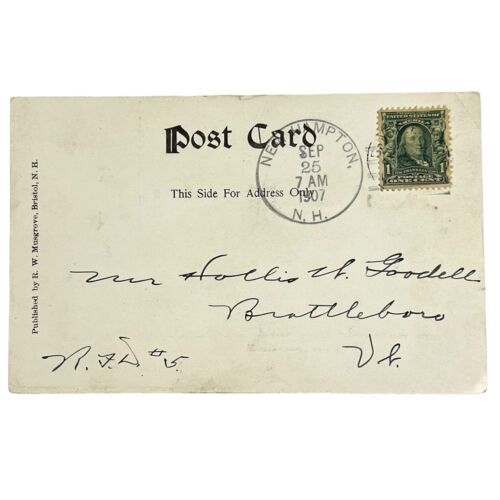 Post Card
This Side For Address Only
NEW HAMPTON,
SEP
25
7 AM
1907
N. H.
UNITED STATES OF
AMERICA
1
1
POSTAGE
ONE CENT
Mr Hollis W. Goodell
Brattleboro
Vt.
R. F. D. #5.
Published by R. W. Musgrove, Bristol, N. H.